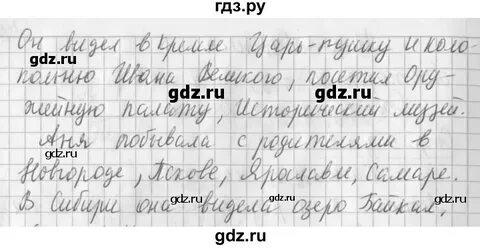 гдз.ру
Он видел в Кремле Царь-пушку и коло-
кольню Ивана Великого, посетил Ору-
жейную палату, Исторический музей.
Аня побывала с родителями в
Новгороде, Пскове, Ярославле, Самаре.
В Сибири она видела озеро Байкал.